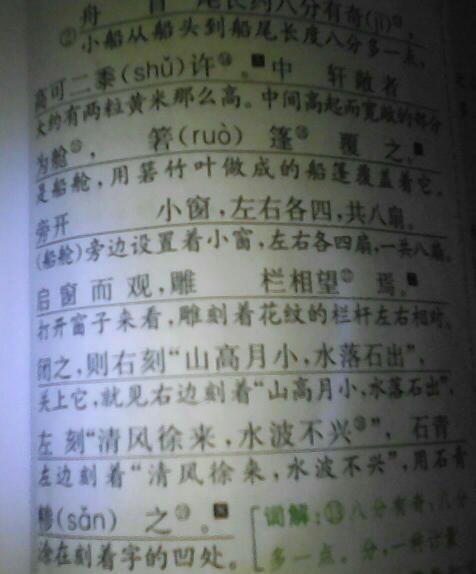 舟 首 尾长约八分有奇(jī),
②小船从船头到船尾长度八分多一点,
高可二黍(shǔ)许⑭。中 轩敞者
大约有两粒黄米那么高。中间高起而宽敞的部分
为舱⑮, 箬(ruò) 篷⑯ 覆 之。
是船舱,用箬竹叶做成的船篷覆盖着它。
旁开 小窗,左右各四,共八扇。
(船舱)旁边设置着小窗,左右各四扇,一共八扇。
启窗而观,雕 栏相望⑰ 焉。
打开窗子来看,雕刻着花纹的栏杆左右相对。
闭之,则右刻“山高月小,水落石出”,
关上它,就见右边刻着“山高月小,水落石出”,
左 刻“清风徐来,水波不兴⑱”, 石青
左边刻着“清风徐来,水波不兴”,用石青
糁(sǎn) 之⑲。
涂在刻着字的凹处。
词解:⑬八分有奇:八分
多一点。分,一种计量